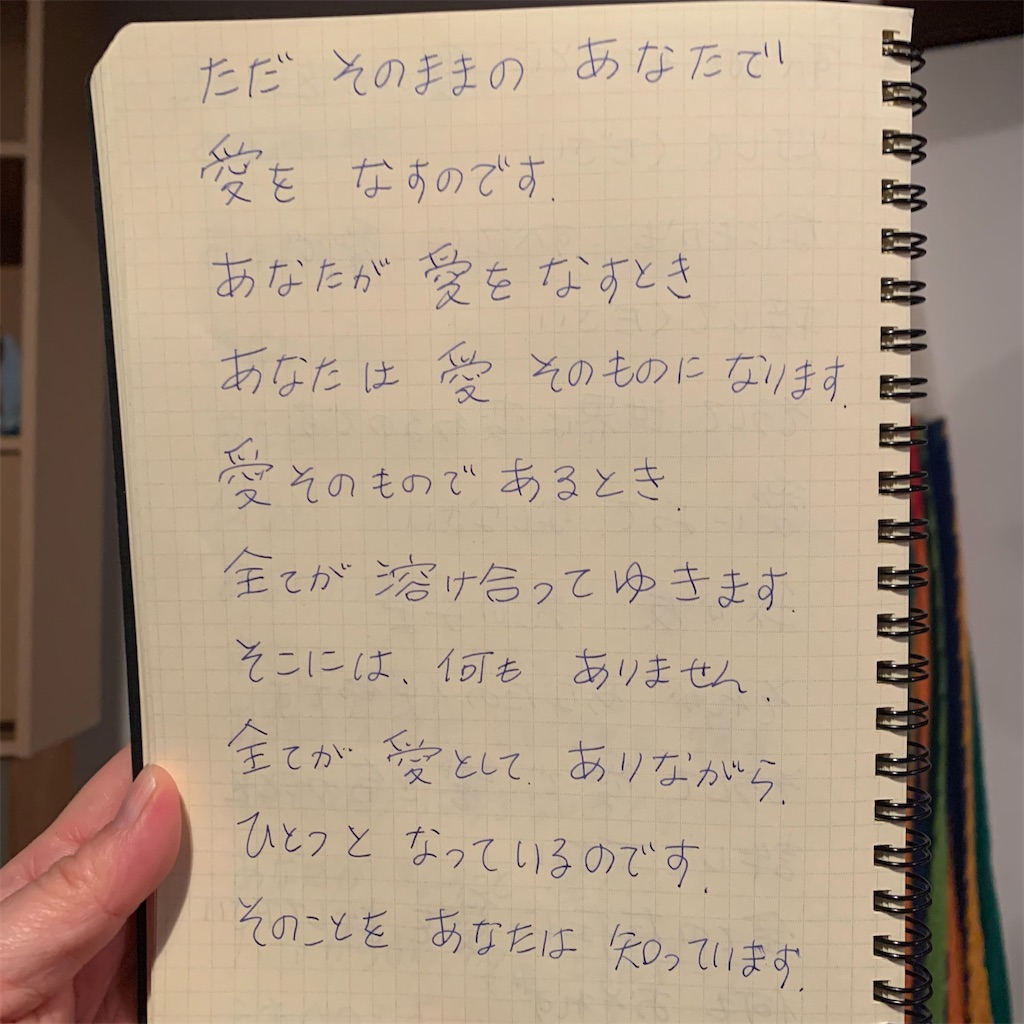 ただ そのままの あなたで
愛を なすのです.
あなたが 愛を なすとき
あなたは 愛 そのものに なります.
愛そのもので あるとき.
全てが 溶け合って ゆきます.
そこには、何も ありません.
全てが 愛として. ありながら.
ひとつと なっているのです.
そのことを あなたは 知っています.